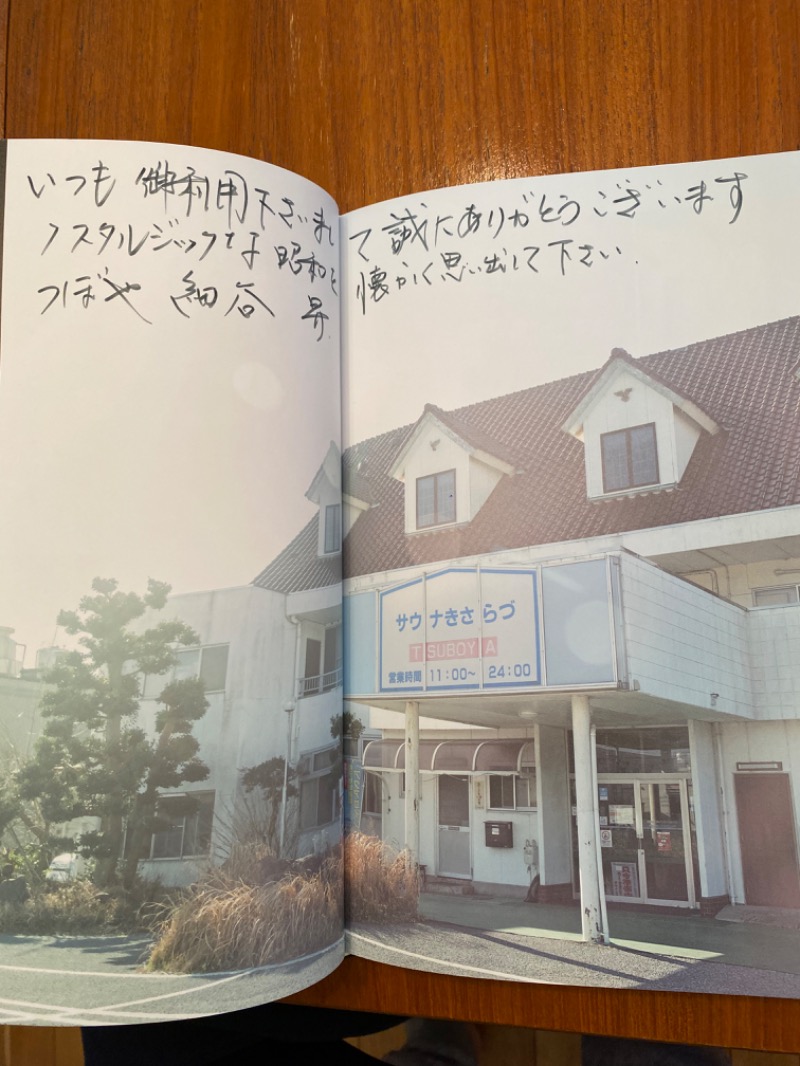 いつも御利用下さいまして誠にありがとうございます
ノスタルジックな昭和を懐かしく思い出して下さい.
つぼや 細谷 昇
サウナきさらづ
TSUBOYA
営業時間 11:00~24:00